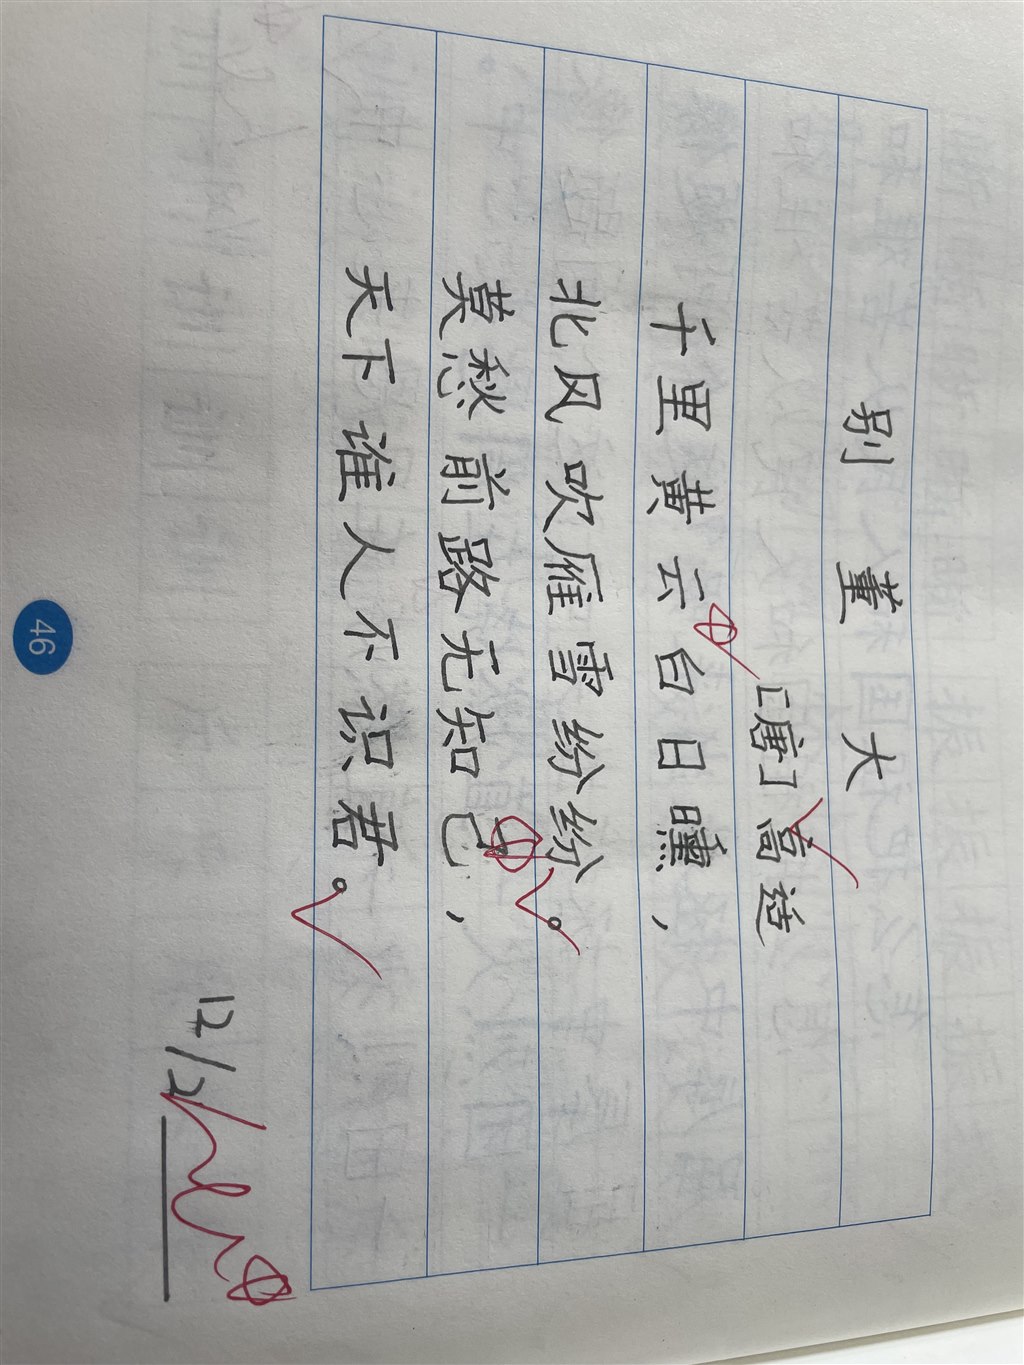 别董大
[唐]高适
千里黄云白日曛，
北风吹雁雪纷纷。
莫愁前路无知己，
天下谁人不识君。
12/2
46